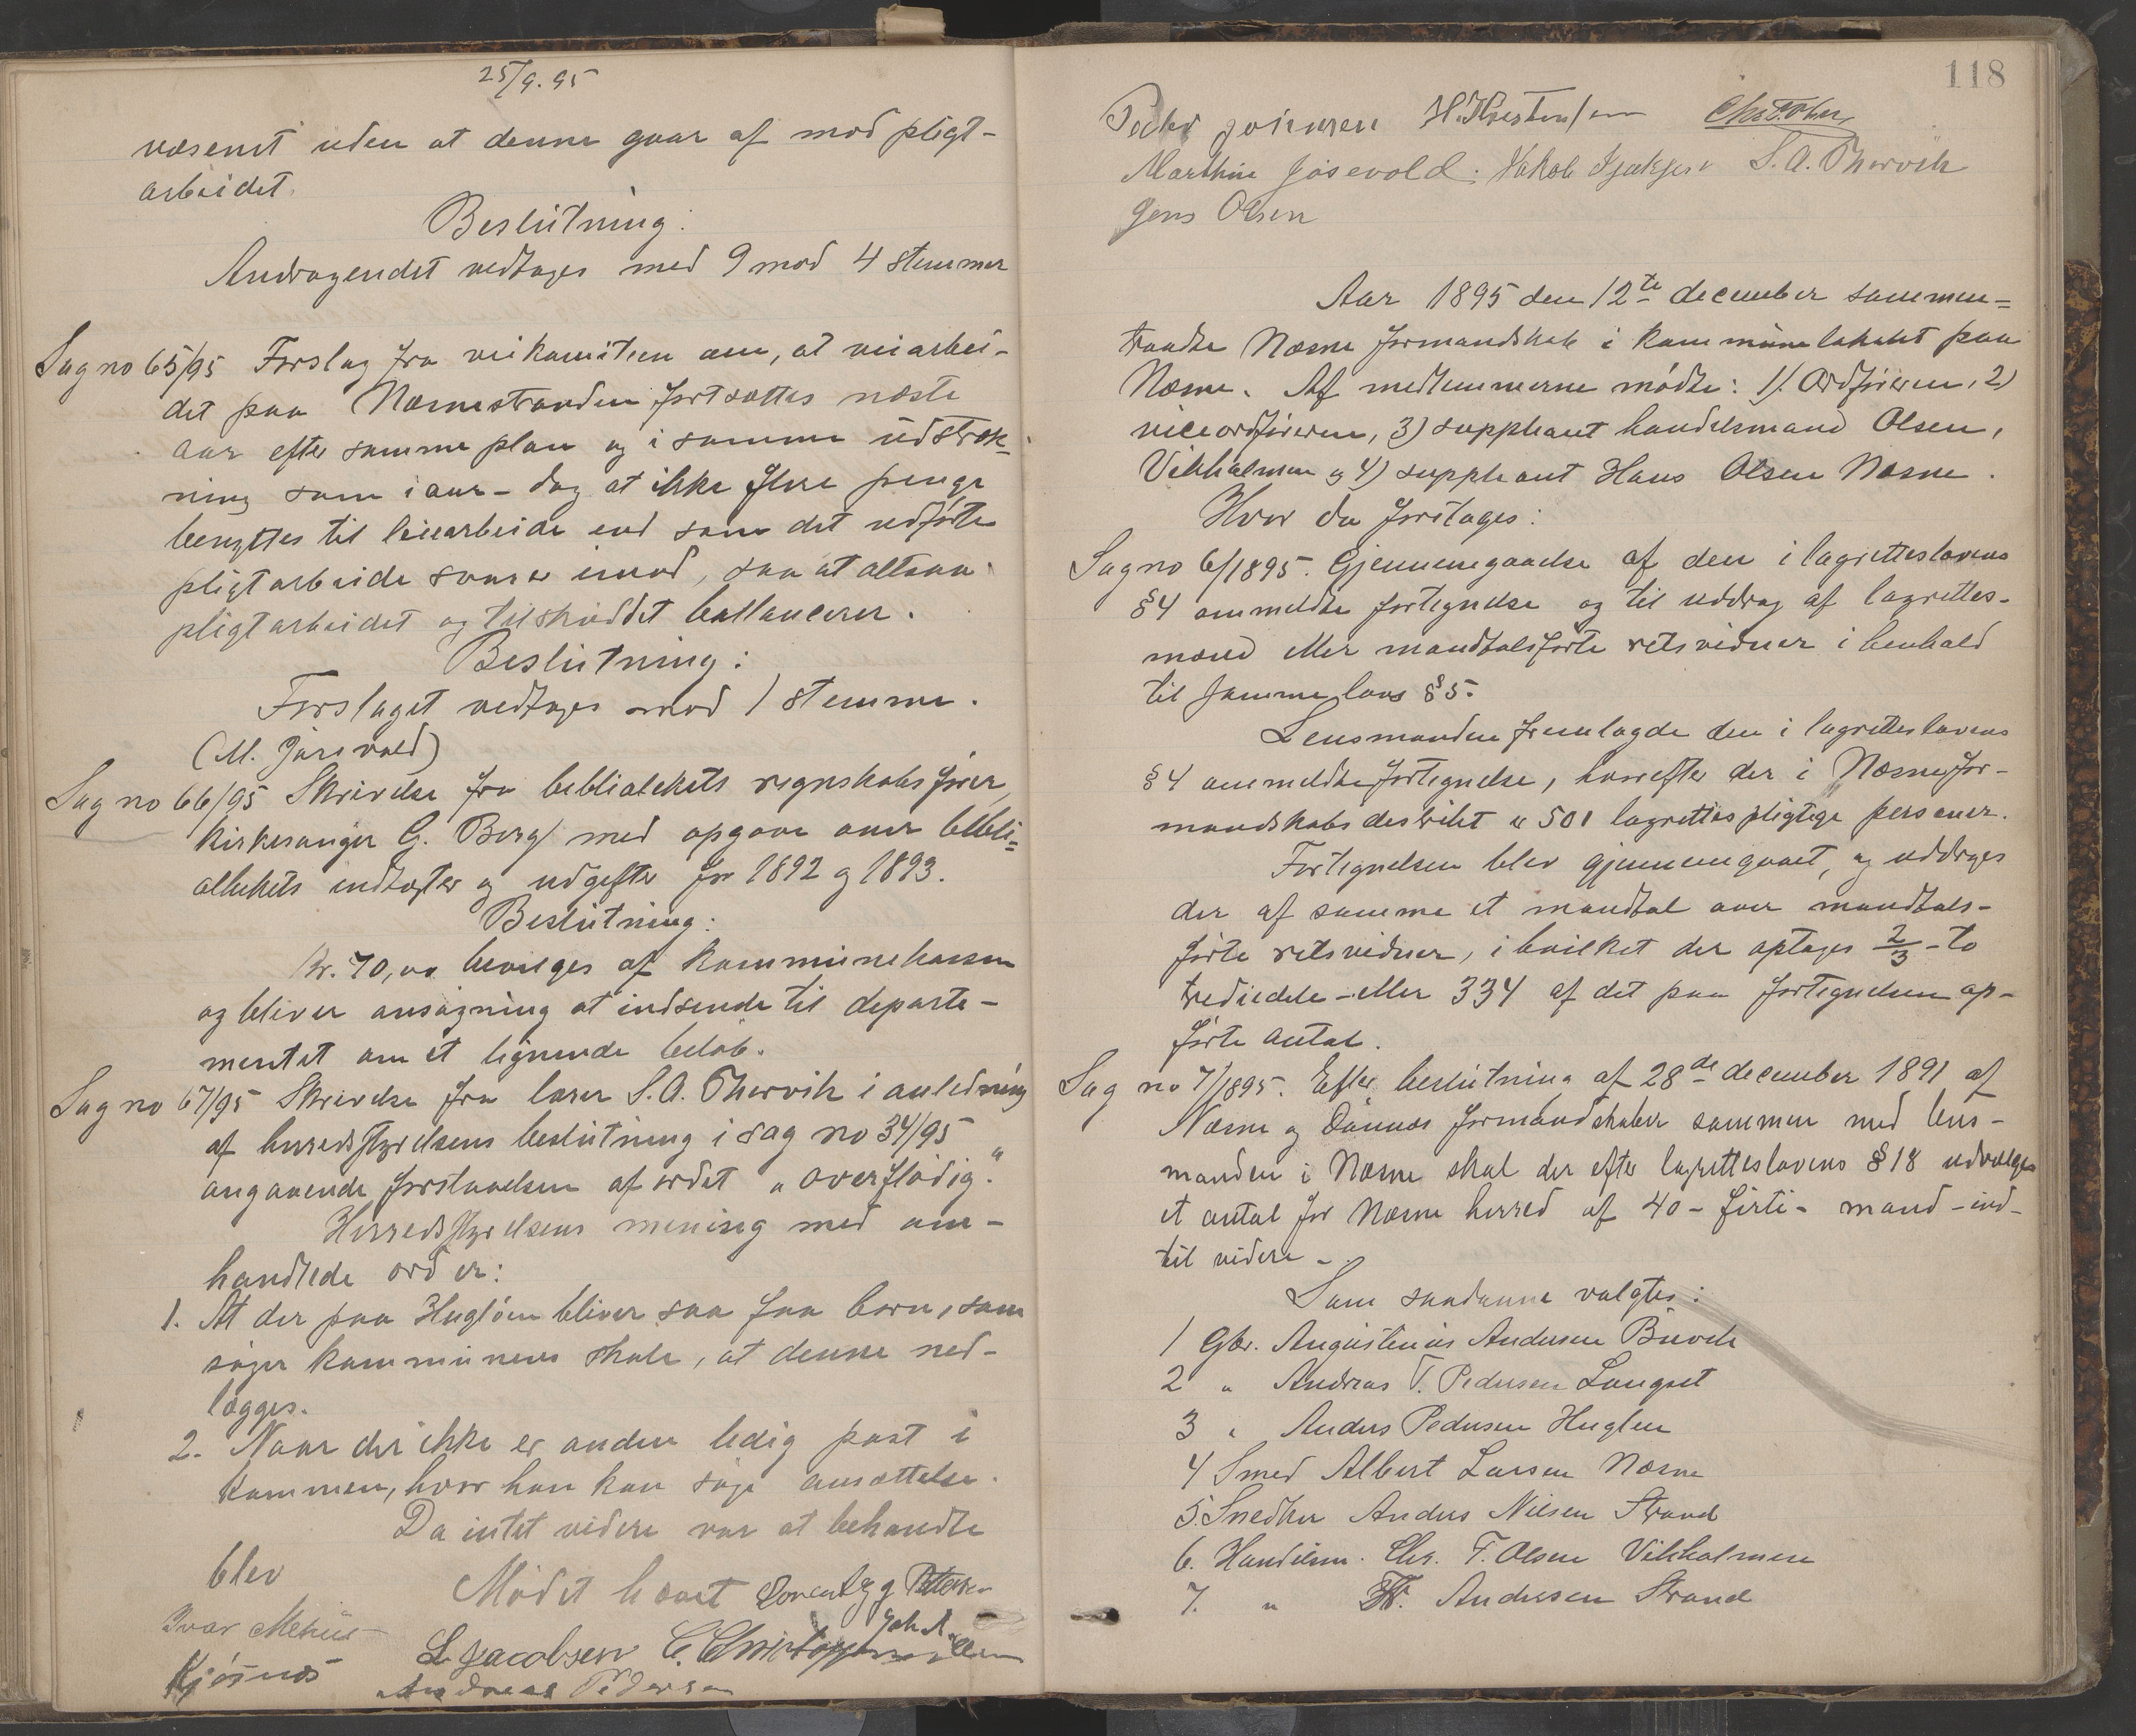 25/9. 95
væsenet uden at denne gaar af mod pligt-
arbeidet.
Beslutning:
Andragendet vedtages med 9 mod 4 stemmer
Sag no 65/95 Forslag fra veikomiteen om, at veiarbei-
det paa Næsnestranden fortsættes næste
aar efter samme plan og i samme udstræk-
ning som iaar - dog at ikke flere penge
benyttes til leiearbeide end som det udførte
pligtarbeide svarer imod, saa at altsaa
pligtarbeidet og tilskuddet ballancerer.
Beslutning:
Forslaget vedtages mod 1 stemme.
(M. Jøsevold)
Sag no 66/95 Skrivelse fra bibliotekets regnskabsfører,
kirkesanger C. Berg med opgave over bibli=
othekets indtægter og udgifter for 1892 og 1893.
Beslutning:
Kr. 70,00 bevilges af kommunekassen
og bliver ansøgning at indsende til departe-
mentet om et lignende beløb.
Sag no 67/95 Skrivelse fra lærer S. A. Thorvik i anledning
af herredsstyrelsens beslutning i sag no 34/95
angaaende forstaaelsen af ordet "overflødig".
Herredsstyrelsens mening med om-
handlede ord er:
1. At der paa Hugløen bliver saa faa børn, som
søger kommunens skole, at denne ned-
lægges.
2. Naar der ikke er anden ledig post i
kommunen, hvor han kan søge ansættelse.
Da intet videre var at behandle
blev
Mødet hævet Petersen
Ivar
Kjøsnæs L. Jacobsen Joh. A.
Andreas Pedersen
118
Peder Johnsen
Marthin Jøsevold. Jakob S. A. Thorvik
Jens Olsen
Aar 1895 den 12te december sammen=
traadte Næsne formandskab i kommunelokalet paa
Næsne. Af medlemmerne mødte: 1). Ordføreren, 2)
viceordføreren, 3) suppleant handelsmand Olsen,
Vikholmen og 4) suppleant Hans Olsen Næsne.
Hvor da foretages:
Sag no 6/1895. Gjennemgaaelse af den i lagretteslovens
§4 ommeldte fortegnelse og til uddrag af lagrettes-
mænd eller mandtalsførte retsvidner i henhold
til samme lovs §5.
Lensmanden fremlagde den i lagretteslovens
§4 ommeldte fortegnelse, hvorefter der i Næsne for-
mandskabsdestrikt er 501 lagrettespligtige personer.
Fortegnelsen blev gjennemgaaet, og uddroges
der af samme et mandtal over mandtals-
førte retsvidner, i hvilket der optages 2/3 - to
trediedele - eller 334 af det paa fortegnelsen op-
førte antal.
Sag no 7/1895. Efter beslutning af 28de december 1891 af
Næsne og Dønnæs formandskaber sammen med lens-
manden i Næsne skal der efter lagretteslovens §18 udvælges
et antal for Næsne herred af 40 - firti - mand - ind-
til videre -.
Som saadanne valgtes:
1 Gbr. Augustinus Andersen Buvik
2 " Andreas T. Pedersen Langset
3 " Anders Pedersen Huglen
4 Smed Albert Larsen Næsne
5. Snedker Anders Nilsen Strand
6. Handelsm. Chr. F. Olsen Vikholmen
7. " Fr. Andresen Strand